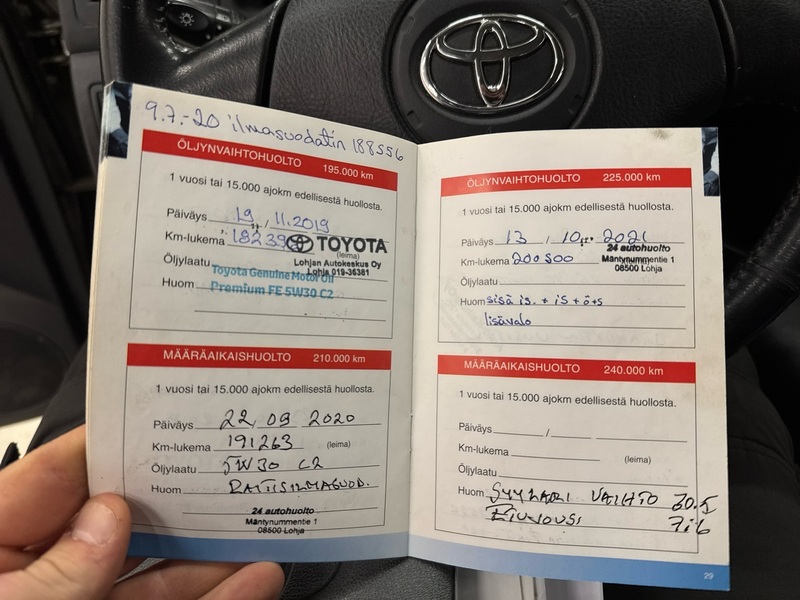 9.7.-20 ilmasuodatin 188556
ÖLJYNVAIHTOHUOLTO 195.000 km
1 vuosi tai 15.000 ajokm edellisestä huollosta.
Päiväys 19 / 11.2019
Km-lukema 18239
TOYOTA
(leima)
Lohjan Autokeskus Oy
Lohja 019-36381
Öljylaatu
Toyota Genuine Motor Oil
Huom
Premium FE 5W30 C2
MÄÄRÄAIKAISHUOLTO 210.000 km
1 vuosi tai 15.000 ajokm edellisestä huollosta.
Päiväys 22 / 09 2020
Km-lukema 191263 (leima)
Öljylaatu 5W30 C2
Huom RAITISILMASUOD.
24 autohuolto
Mäntynummentie 1
08500 Lohja
ÖLJYNVAIHTOHUOLTO 225.000 km
1 vuosi tai 15.000 ajokm edellisestä huollosta.
Päiväys 13 / 10 2021
Km-lukema 200500
24 autohuolto
Mäntynummentie 1
08500 Lohja
Öljylaatu
Huom sisä is. + is + ö+s
lisävalo
MÄÄRÄAIKAISHUOLTO 240.000 km
1 vuosi tai 15.000 ajokm edellisestä huollosta.
Päiväys /
Km-lukema (leima)
Öljylaatu
Huom VAIHTO
29